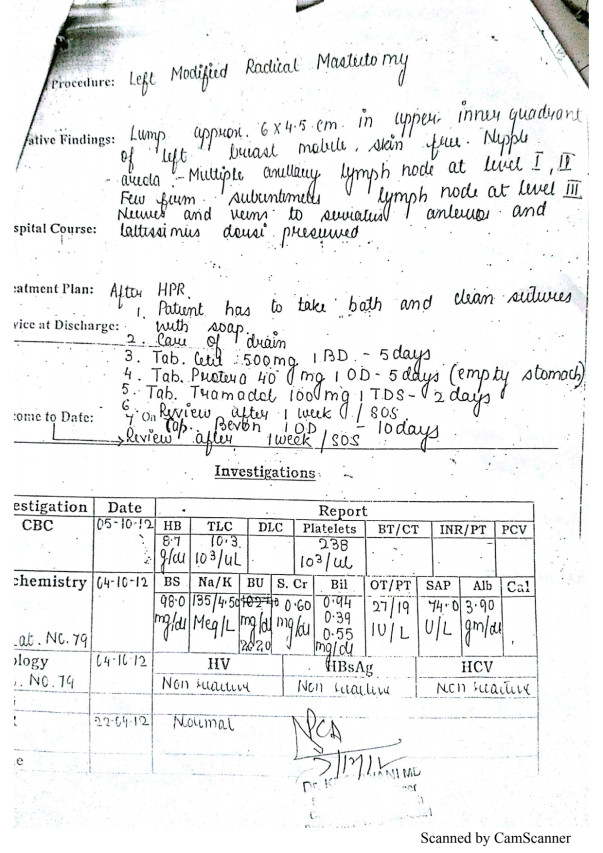 Procedure: Left Modified Radical Mastectomy
ative Findings: Lump approx. 6 x 4.5 cm. in upper inner quadrant
of left breast mobile, skin free. Nipple
areola :- Multiple axillary lymph node at level I, II
Few firm subcentimeter lymph node at level III
Nerves and veins to serratus anterior and
spital Course: lattissimus dorsi preserved
eatment Plan: After HPR.
1. Patient has to take bath and clean sutures
vice at Discharge: with soap.
2. Care of drain
3. Tab. Cetil 500mg 1 BD - 5 days
4. Tab. Protera 40 mg 1 OD - 5 days (empty stomach)
5. Tab. Tramadol 100mg 1 TDS - 2 days
6. Review after 1 week / SOS.
come to Date: 7 On Cap. Bevon 1 OD - 10 days
Review after 1 week / SOS
Investigations
estigation Date Report
CBC 05-10-12 HB TLC DLC Platelets BT/CT INR/PT PCV
8.7 10.3 238
g/dl 10³/uL 10³/uL
chemistry 04-10-12 BS Na/K BU S. Cr Bil OT/PT SAP Alb Cal
98.0 135/4.50 0.60 0.94 27/19 74.0 3.90
mg/dl Meq/L mg/dl mg/dl 0.39 IU/L U/L gm/dl
at. NO. 79 0.55
mg/dl
20.20
ology 04-10-12 HV HBsAg HCV
. NO. 79 Non reactive Non reactive Non reactive
22-04-12 Normal
e
Scanned by CamScanner